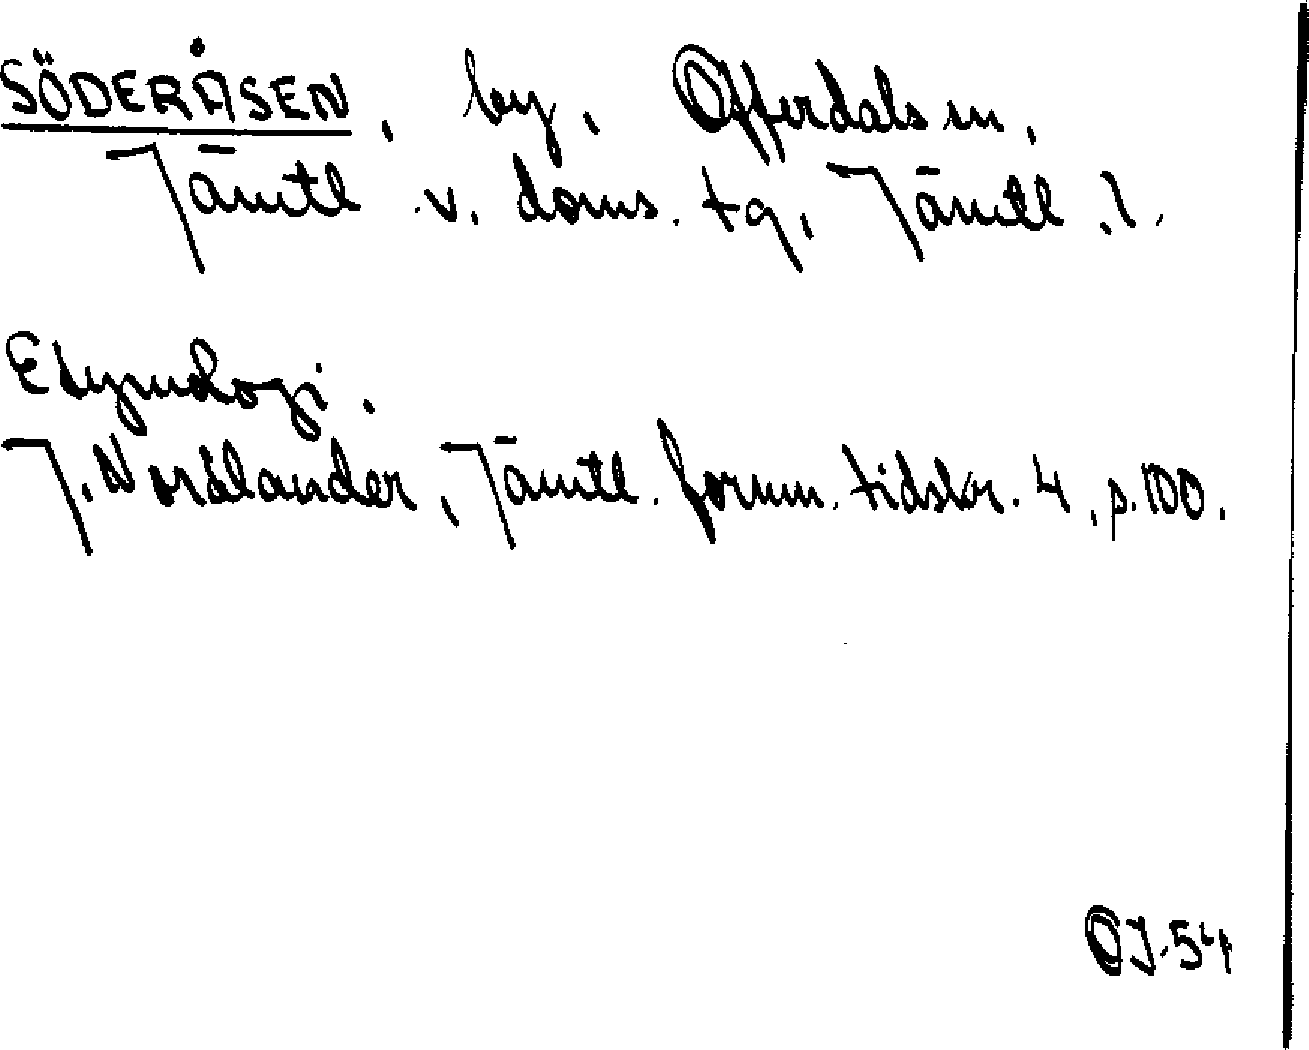 SÖDERÅSEN, by, Offerdals sn,
Jämtl. v. doms. tg, Jämtl. l.
Etymologi.
J. Nordlander, Jämtl. fornm. tidskr. 4, p. 100.
OJ.54